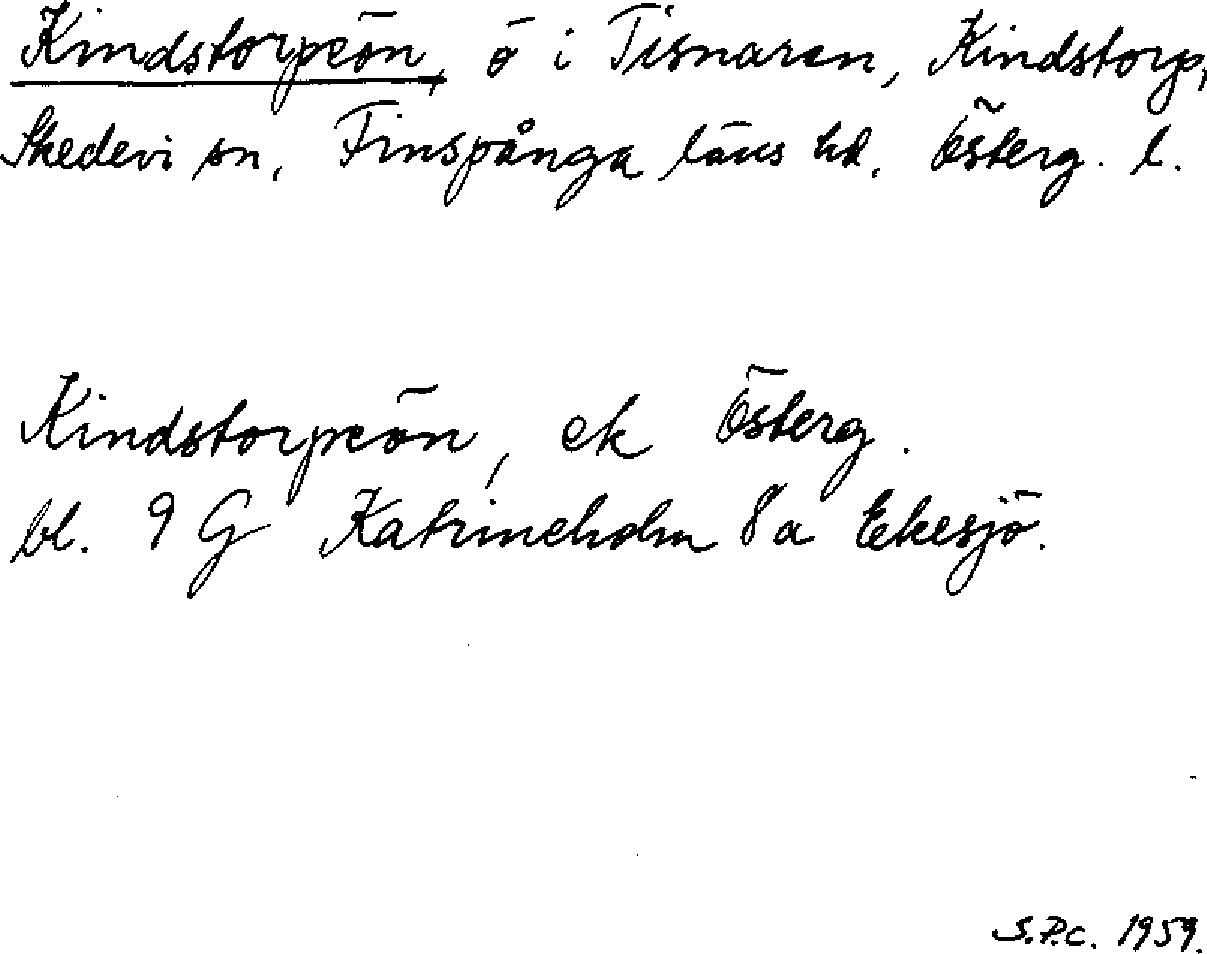 Kindstorpeön, ö i Tisnaren, Kindstorp,
Skedevi sn, Finspånga läns hd, Österg. l.
Kindstorpeön, ek Österg.
bl. 9 G Katrineholm 8a Ekesjö.
S.P.c. 1959.